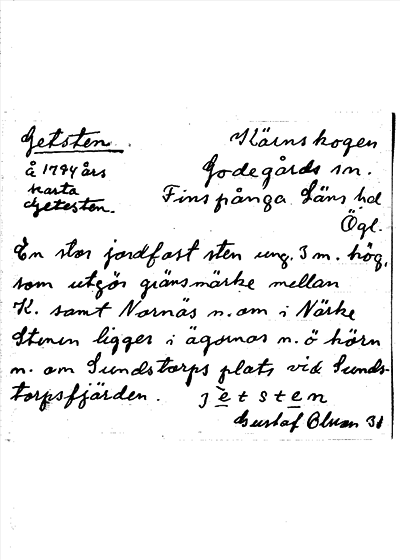 Getsten.
å 1794 års
karta
Getesten.
Kärnskogen
Godegårds sn.
Finspånga Läns hd
Ögl.
En stor jordfast sten ung. 3 m. hög,
som utgör gränsmärke mellan
K. samt Nornäs n. om i Närke
Stenen ligger i ägornas n. ö hörn
n. om Sundstorps plats vid Sunds-
torpsfjärden. jètsten
Gustaf 31